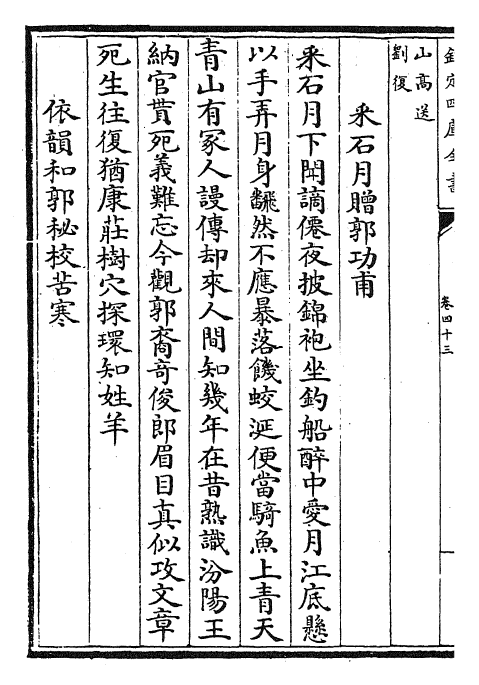 欽定四庫全書
卷四十三
山高送
劉復
采石月贈郭功甫
采石月下閗謫僊夜披錦袍坐釣船醉中愛月江底懸
以手弄月身飜然不應暴落饑蛟涎便當騎魚上青天
青山有冢人謾傳却來人間知幾年在昔熟識汾陽王
納官貰死義難忘今觀郭裔竒俊郎眉目真似攻文章
死生往復猶康莊樹穴探環知姓羊
依韻和郭秘校苦寒